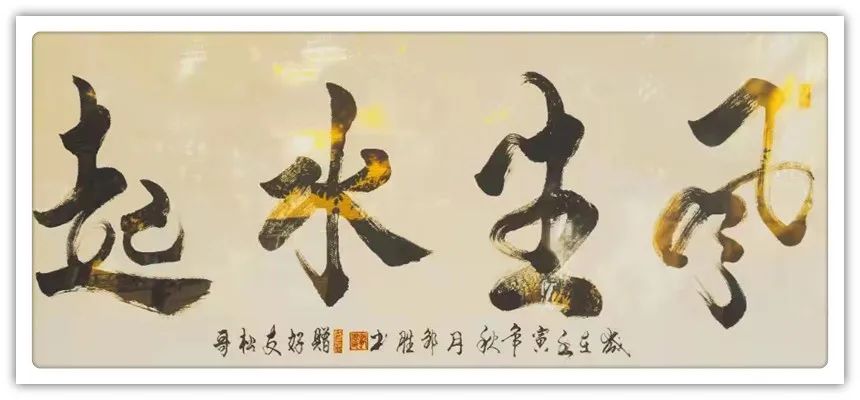 風生水起
歲在壬寅年秋月胜书赠好友松哥